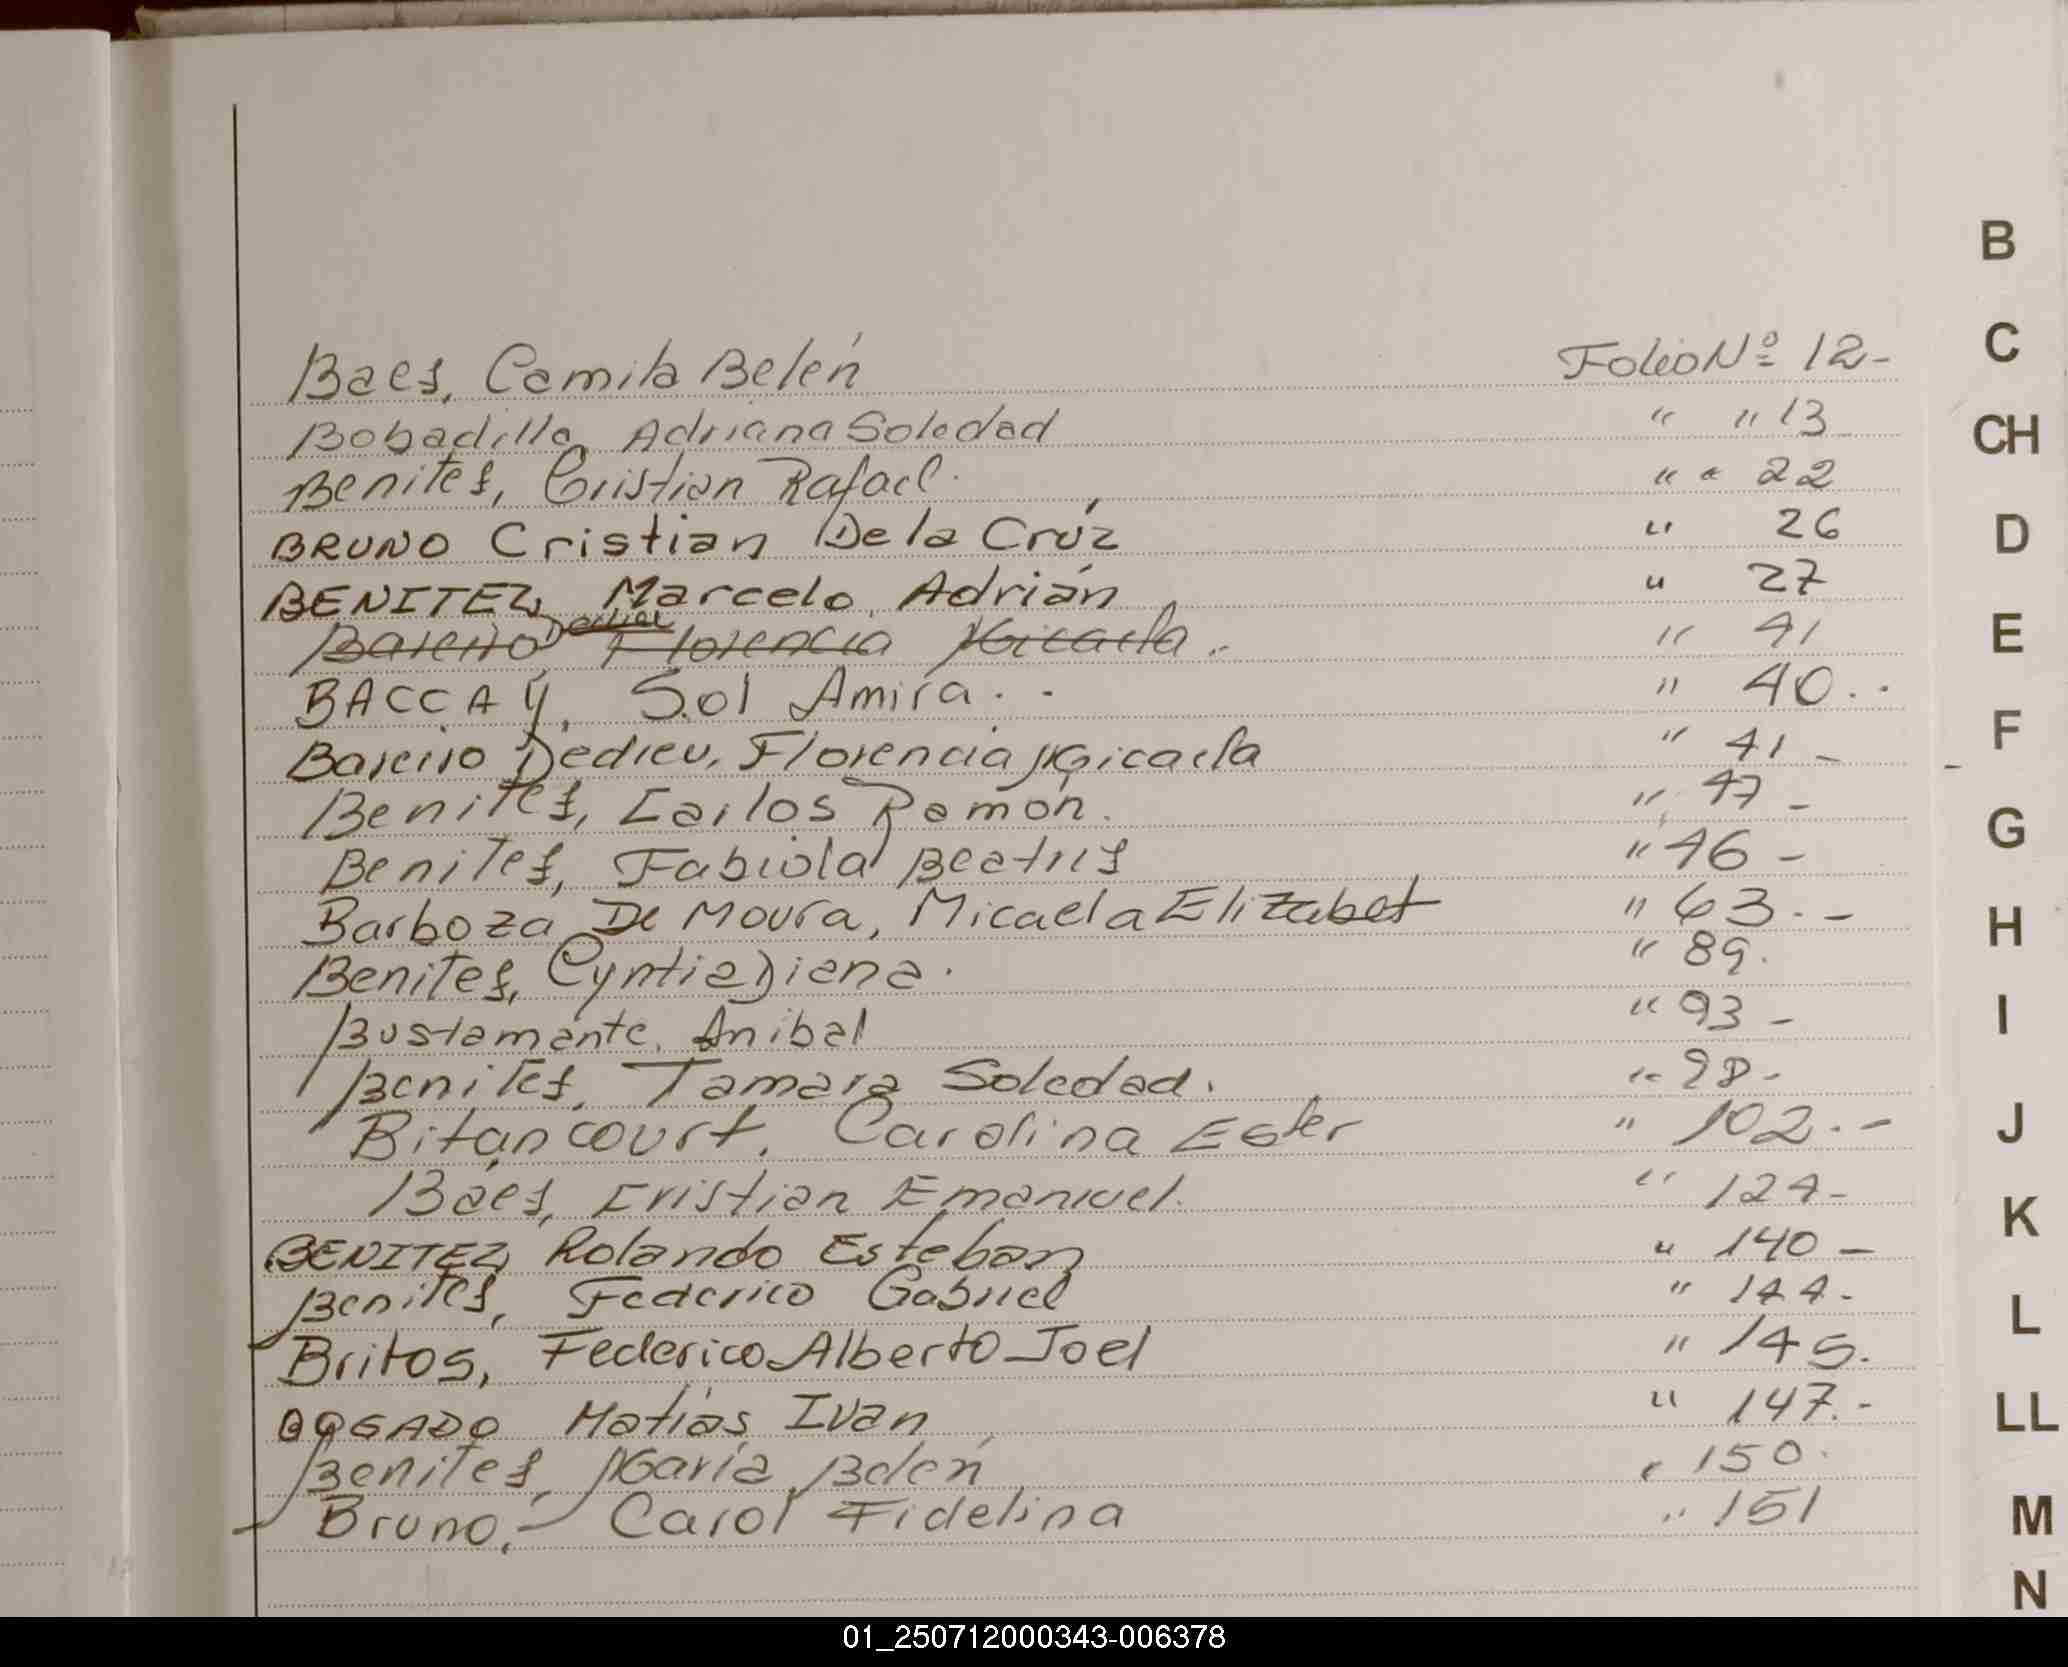 B
C
CH
D
E
F
G
H
I
J
K
L
LL
M
N
Baes, Camila Belén Folio Nº 12-
Bobadilla, Adriana Soledad " " 13
Benites, Cristian Rafael. " " 22
BRUNO Cristian De la Crúz " 26
BENITEZ, Marcelo Adrián " 27
Bareiro Dedieu Florencia Micaela. " 41
BACCAY, Sol Amira. - " 40..
Bareiro Dedieu, Florencia Micaela " 41 -
Benites, Carlos Ramón. " 47 -
Benites, Fabiola Beatris " 46 -
Barboza De Moura, Micaela Elizabet " 63.-
Benites, Cyntia Diana. " 89.
Bustamante, Anibal " 93 -
Benites, Tamara Soledad. " 98-
Bitancourt, Carolina Ester " 102.-
Baes, Cristian Emanuel. " 124-
BENITEZ, Rolando Esteban " 140 -
Benites, Federico Gabriel " 144-
Britos, Federico Alberto Joel " 145.
BOGADO Matías Ivan " 147.-
Benites, María Belén " 150.
Bruno,- Carol Fidelina " 151
01_250712000343-006378